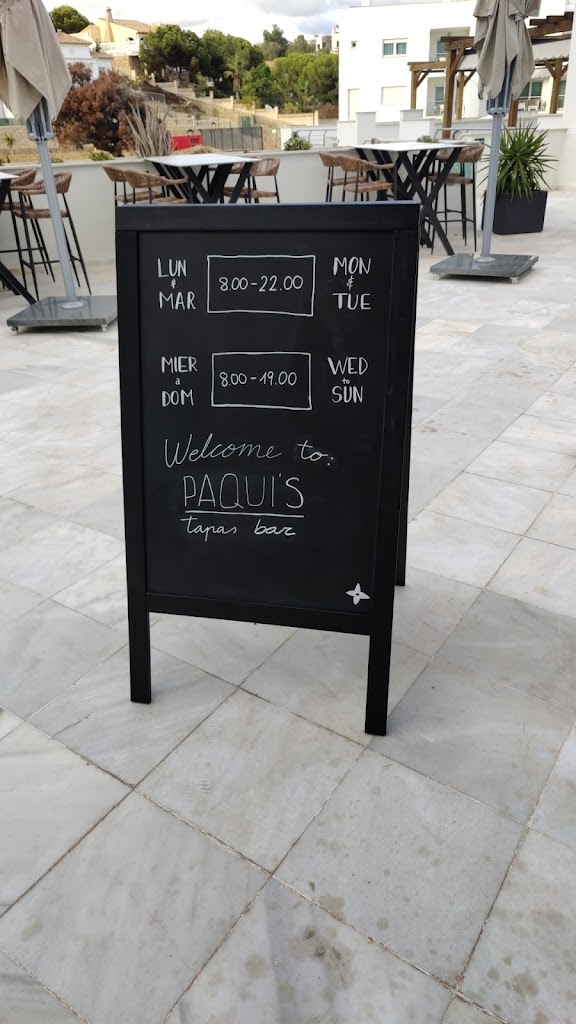 LUN & MAR 8.00-22.00 MON & TUE
MIER a DOM 8.00-19.00 WED to SUN
Welcome to:
PAQUI'S
tapas bar